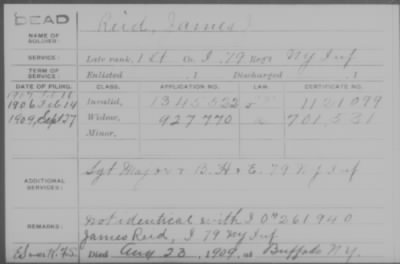 DEAD
NAME OF SOLDIER: Reid, James
SERVICE: Late rank, 1 Lt Co. I, 79 Reg't NY Inf
TERM OF SERVICE: Enlisted , 1 Discharged , 1
DATE OF FILING. CLASS. APPLICATION NO. LAW. CERTIFICATE NO.
1906 Feb 14 Invalid, 1345532 1121099
1909, Sept 27 Widow, 927770 701,531
Minor,
ADDITIONAL SERVICES: Sgt Major & B. H & E. 79 NY Inf
REMARKS: not identical with I O 261940
James Reid, I 79 NY Inf.
Died Aug 23, 1909, at Buffalo NY.